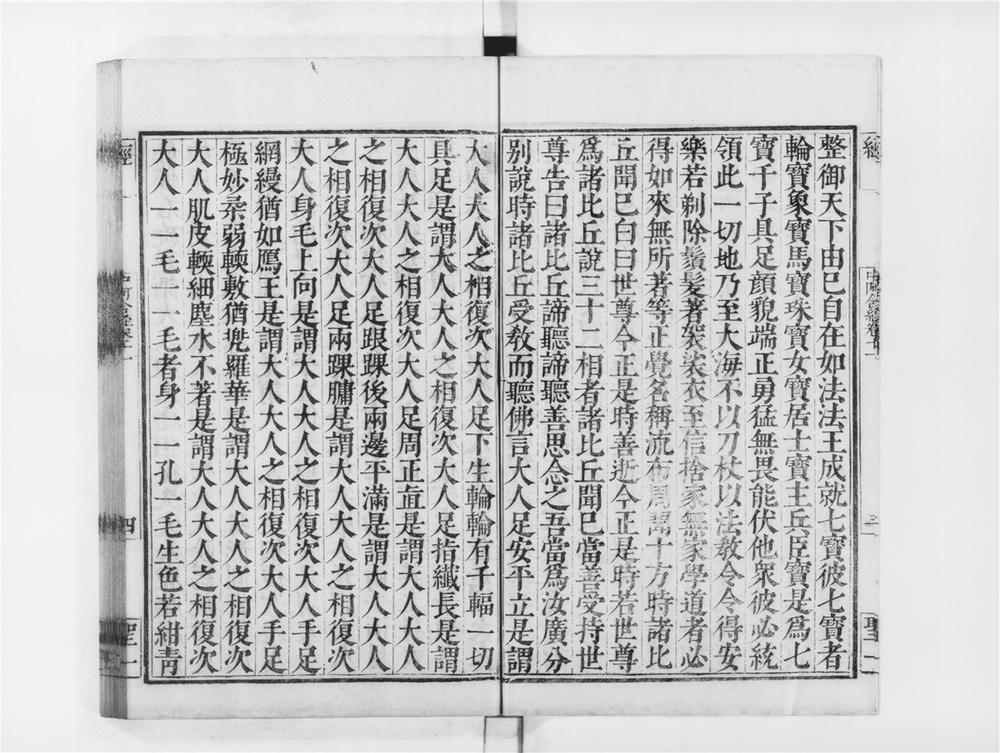 整御天下由己自在如法法王成就七寶彼七寶者
輪寶象寶馬寶珠寶女寶居士寶主兵臣寶是爲七
寶千子具足顏貌端正勇猛無畏能伏他眾彼必統
領此一切地乃至大海不以刀杖以法教令令得安
樂若剃除鬚髮著袈裟衣至信捨家無家學道者必
得如來無所著等正覺名稱流布周聞十方時諸比
丘聞已白曰世尊今正是時善逝今正是時若世尊
爲諸比丘說三十二相者諸比丘聞已當善受持世
尊告曰諸比丘諦聽諦聽善思念之吾當爲汝廣分
別說時諸比丘受教而聽佛言大人足安平立是謂
大人大人之相復次大人足下生輪輪有千輻一切
具足是謂大人大人之相復次大人足指纖長是謂
大人大人之相復次大人足周正直是謂大人大人
之相復次大人足跟踝後兩邊平滿是謂大人大人
之相復次大人足兩踝𦟛是謂大人大人之相復次
大人身毛上向是謂大人大人之相復次大人手足
網縵猶如鴈王是謂大人大人之相復次大人手足
極妙柔弱輭敷猶兠羅華是謂大人大人之相復次
大人肌皮輭細塵水不著是謂大人大人之相復次
大人一一毛一一毛者身一一孔一毛生色若紺青
經
四
聖一